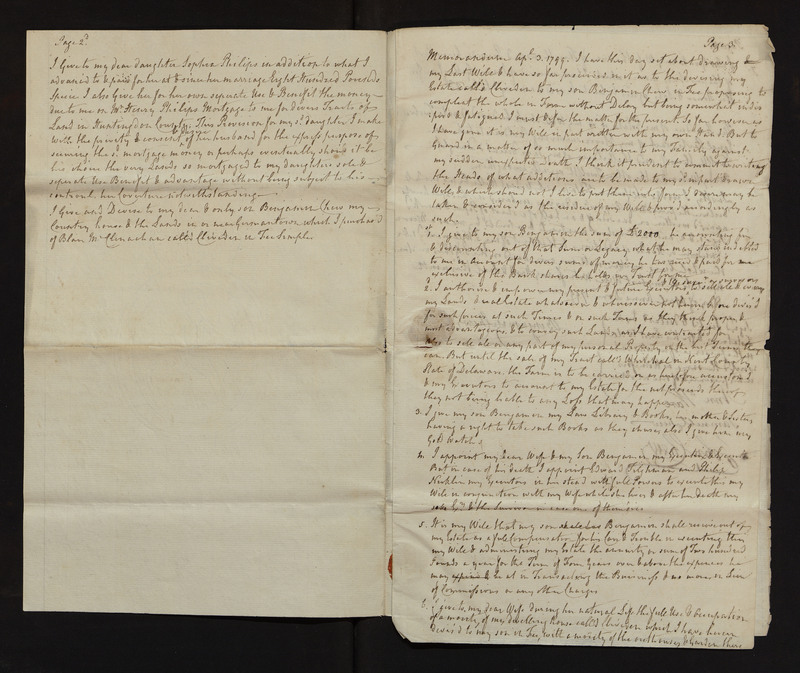 Page 2d
I Give to my dear daughter Sophia Philips in addition to what I
advanced to & paid for her at & since her marriage Eight Hundred Pounds
Specie I also give her for her own separate Use & Benefit the money
due to me on Mr Henry Philips Mortgage to me for divers Tracts of
Land in Huntingdon County. This Provision for my sd daughter I make
with the privity & consent of her husband for the express purpose of
securing the sd mortgage money or perhaps eventually should it be
his choice the very Lands so mortgaged to my daughter's sole &
separate Use Benefit & advantage without being subject to his
controul her Coverture notwithstanding
I Give and Devise to my dear & only son Benjamin Chew my
Country house & the Lands in or near Germantown which I purchased
of Blair McClenachan called Cliveden in Fee Simple
Page 3
Memorandum Apl 3. 1799. I have this day set about drawing
my Last Will & have so far proceeded in it as to the devising my
Estate called Cliveden to my son Benjamin Chew in Fee proposing to
compleat the whole in Form without Delay but being somewhat indis
posed & fatigued I must defer the matter for the present. So far however as
I have gone it is my Will in part written with my own Hand. But to
Guard in a matter of so much importance to my Family against
my sudden unexpected Death I think it prudent to commit to writing
the Heads of what additions are to be made to my
Will & which should not I live to put them into form I desire may be
taken & considered as the residue of my Will & proved accordingly as
such
1st I give to my son Benjamin the sum of £2000 he accounting for
& discounting out of that Sum or Legacy what he may stand indebted
to me on Account for divers sums of money he has recd & paid for me
exclusive of the Bank shares he holds in Trust for me
2. I authorize & empower my present & future Executors to sell & convey
my Lands & real Estate whatsoever & wheresoever not herein before devised
for such prices at such Times & on such Terms as they think proper &
most advantageous & to convey such Lands
also to sell all or any part of my personal Property on the best Terms they
can. But until the sale of my Tract called Whitehall in Kent County
State of Delaware the Farm is to be carried on as heretofore accustomed
& my Executors to account to my Estate for the net proceeds thereof
they not being liable to any Loss that may happen
3. I give my son Benjamin my Law Library & Books, his mother & Sisters
having a right to take such Books as they choose also I give him my
Gold Watch
4. I appoint my dear Wife & my Son Benjamin my Executrix & Executor
But in case of his death I appoint Edward Tilghman and Philip
Nicklin my Executors in his stead with full Powers to execute this my
Will in conjunction with my Wife while she lives & after her Death my
sole Exrs & the survivor in case one of them dies
5. It is my Will that my son Benjamin shall receive out of
my Estate as a full Compensation for his Care & Trouble in executing this
my Will & administring my Estate the annuity or sum of Two hundred
Pounds a year for the Term of Four Years over & above the expences he
may be at in Transacting the Business & no more in Lieu
of Commissions or any other Charges
6. I give to my dear Wife during her natural Life the full Use & Occupation
of a moiety of my dwelling House called Cliveden which I have herein
devised to my son in Fee, with a moiety of the outhouses & Garden there